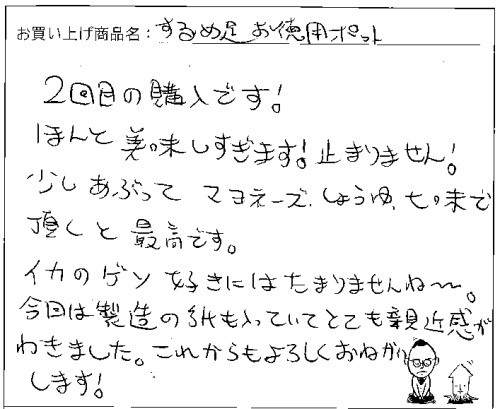 お買い上げ商品名：するめ足 お徳用ポット
2回目の購入です！
ほんと美味しすぎます！止まりません！
少しあぶって マヨネーズ、しょうゆ、七味で
頂くと 最高です。
イカのゲソ 好きにはたまりませんね〜。
今回は製造の紙も入っていてとても親近感が
わきました。これからもよろしくおねがい
します！